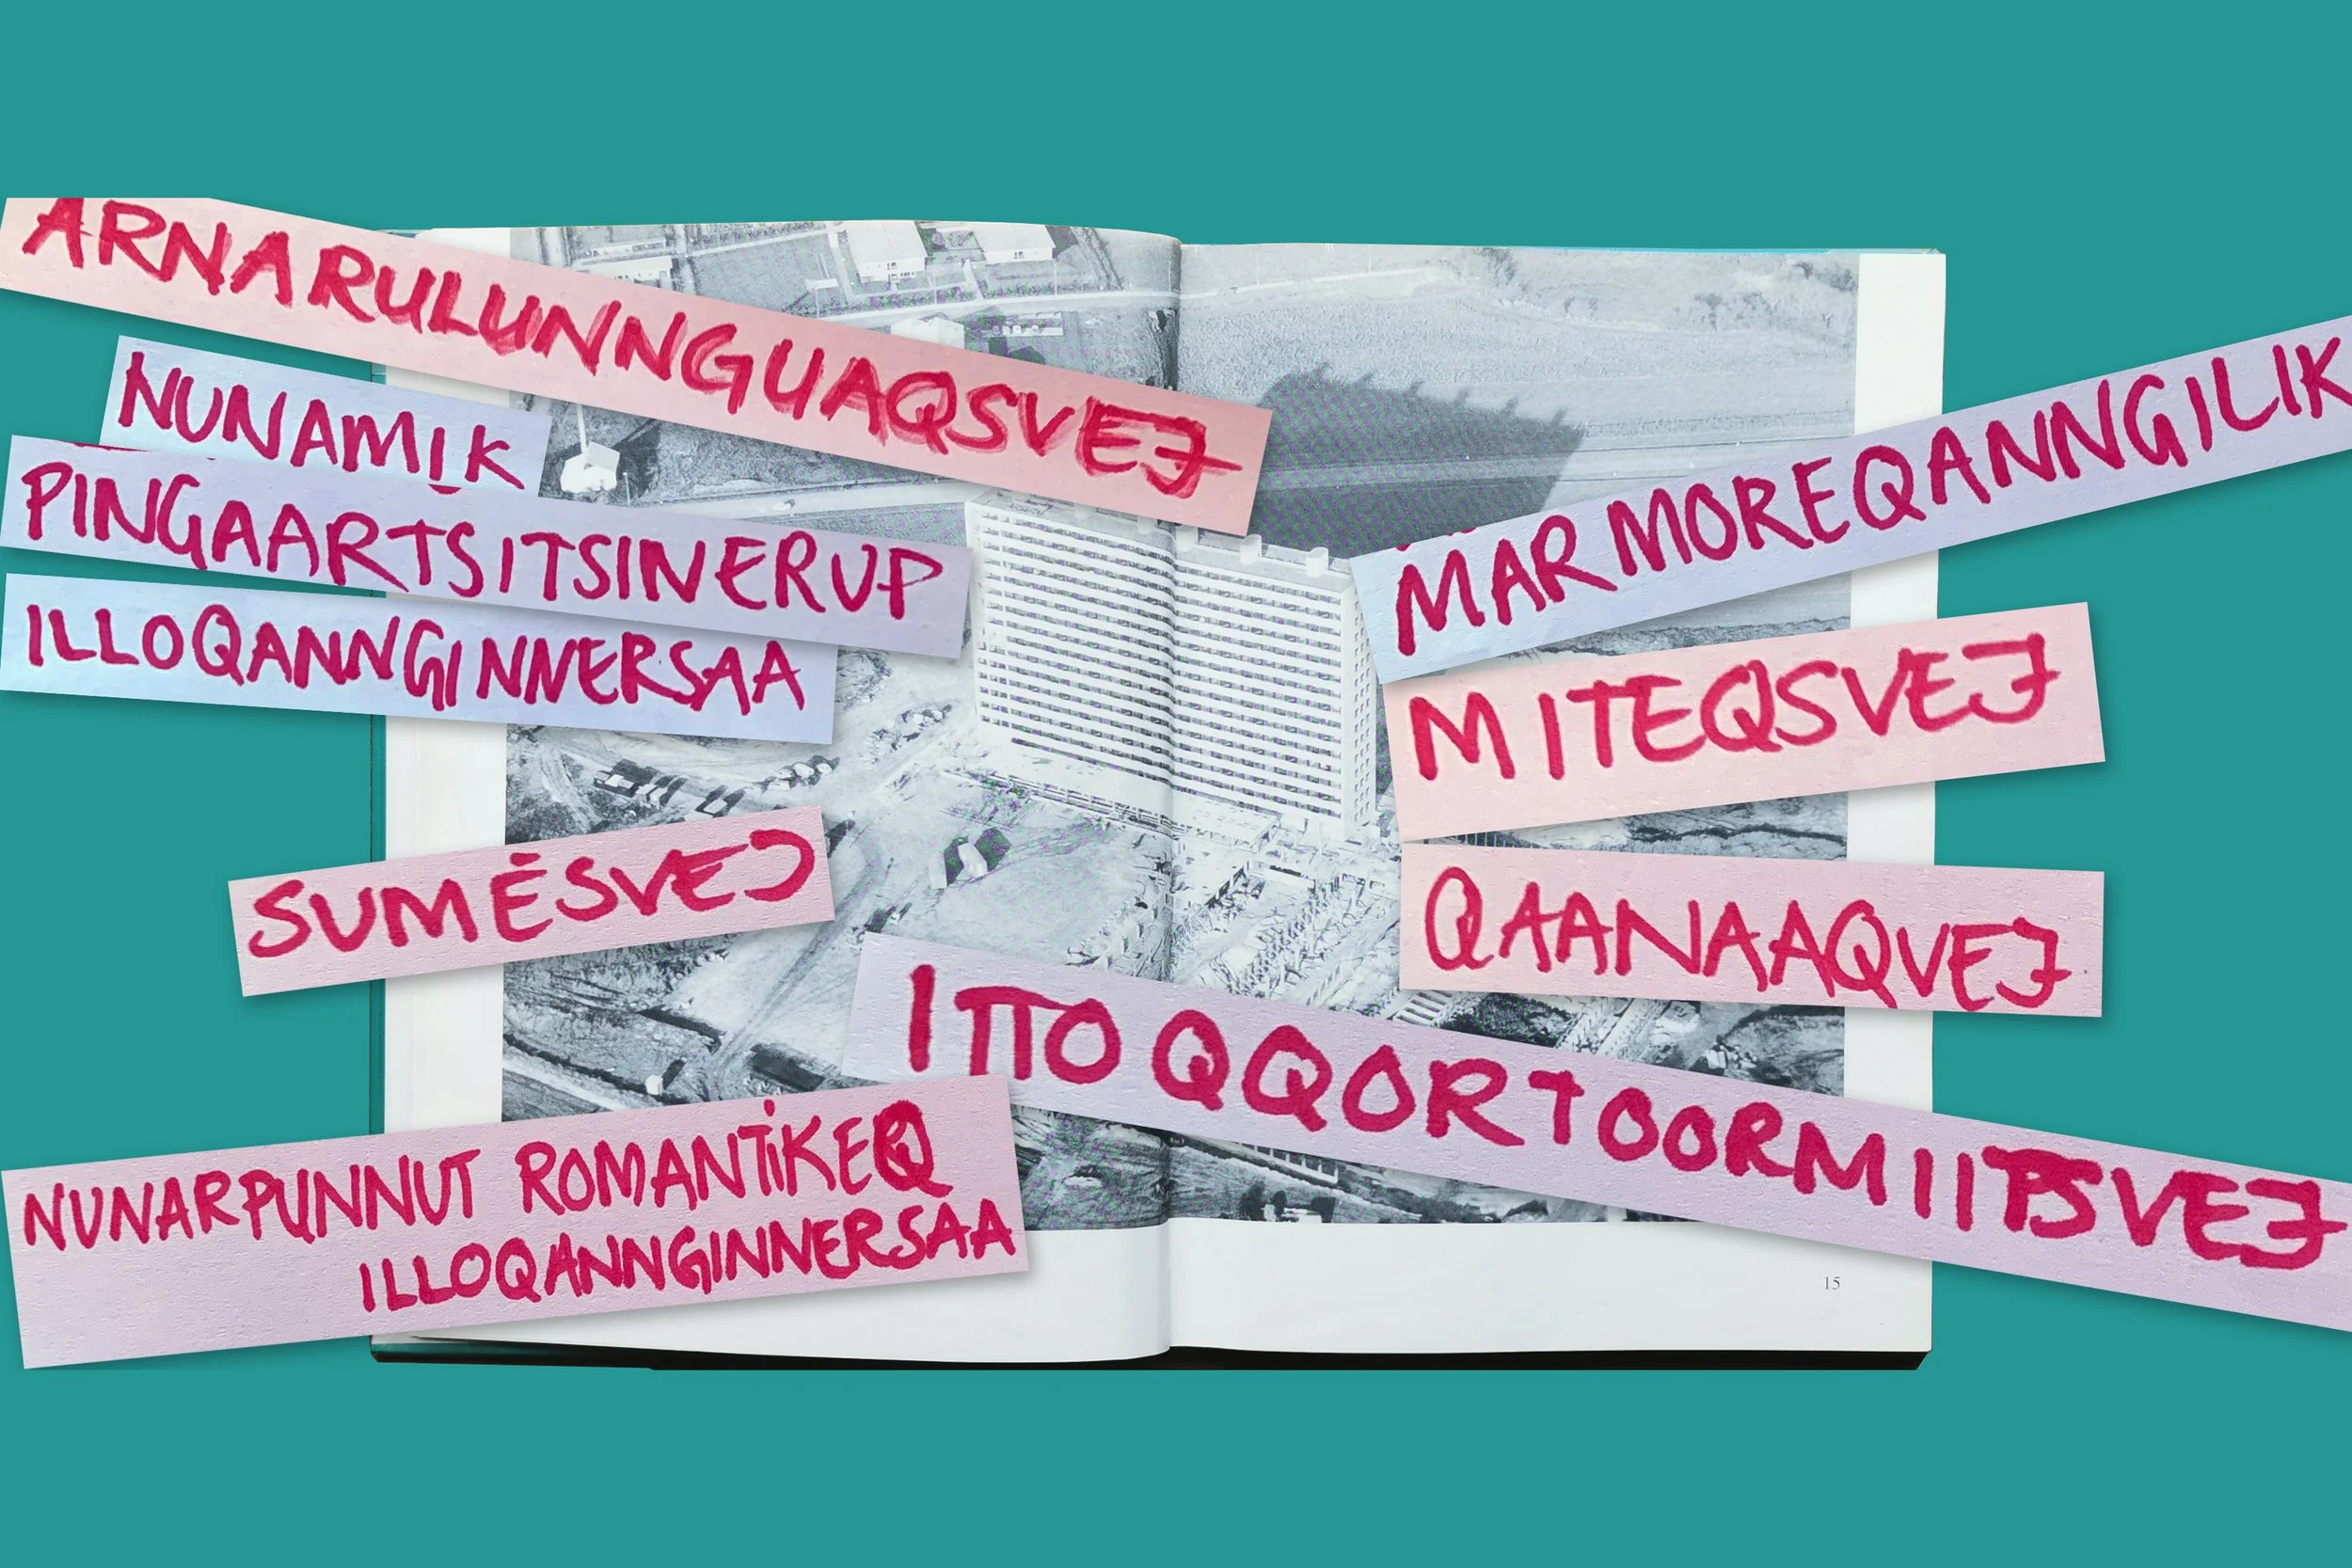 ARNARULUNNGUAQSVEJ
NUNAMIK
PINGAARTSITSINERUP
ILLOQANNGINNERSAA
SUMÈSVEJ
NUNARPUNNUT ROMANTIKEQ
ILLOQANNGINNERSAA
MARMOREQANNGILIK
MITEQSVEJ
QAANAAQVEJ
ITTOQQORTOORMIITSVEJ
15